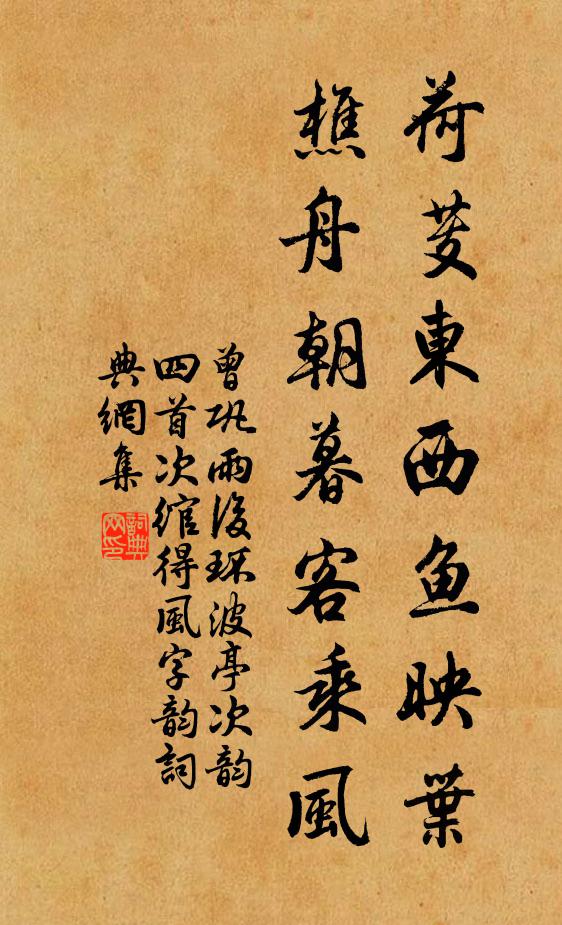 荷芰東西鱼映葉
樵舟朝暮客乘風
曾巩雨後环波亭次韵
四首次綰得風字韵詞
典網集
詞典
网印